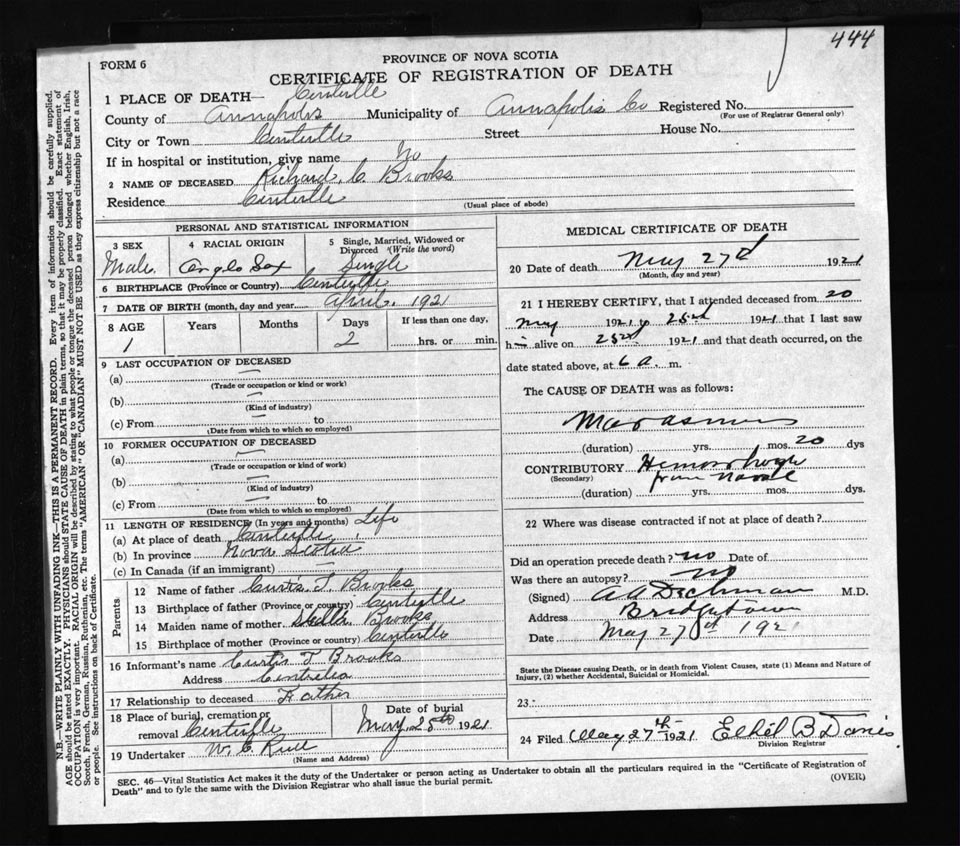 444
FORM 6
PROVINCE OF NOVA SCOTIA
CERTIFICATE OF REGISTRATION OF DEATH
1 PLACE OF DEATH— Centerlle
County of Annapolis Municipality of Annapolis Co Registered No.
(For use of Registrar General only)
City or Town Centerlle Street House No.
If in hospital or institution, give name No
2 NAME OF DECEASED Richard. C. Brooks
Residence Centerlle
(Usual place of abode)
PERSONAL AND STATISTICAL INFORMATION
3 SEX 4 RACIAL ORIGIN 5 Single, Married, Widowed or Divorced (Write the word)
Male. Anglo Sax Single
6 BIRTHPLACE (Province or Country) Centerlle
7 DATE OF BIRTH (month, day and year April. 1921
8 AGE Years Months Days If less than one day,
1 2 hrs. or min.
9 LAST OCCUPATION OF DECEASED
(a)
(Trade or occupation or kind or work)
(b)
(Kind of industry)
(c) From to
(Date from which to which so employed)
10 FORMER OCCUPATION OF DECEASED
(a)
(Trade or occupation or kind of work)
(b)
(Kind of industry)
(c) From to
(Date from which to which so employed)
11 LENGTH OF RESIDENCE (In years and months) Life
(a) At place of death Centerlle
(b) In province Nova Scotia
(c) In Canada (if an immigrant)
Parents
12 Name of father Curtis. T. Brooks
13 Birthplace of father (Province or country) Centerlle
14 Maiden name of mother Stella Brooks
15 Birthplace of mother (Province or country) Centerlle
16 Informant's name Curtis T Brooks
Address Centrelea
17 Relationship to deceased Father
18 Place of burial, cremation or removal Centerlle Date of burial May 28th 1921
19 Undertaker W. C.
(Name and Address)
MEDICAL CERTIFICATE OF DEATH
20 Date of death May 27th 1921
(Month, day and year)
21 I HEREBY CERTIFY, that I attended deceased from 20
May 1921 to 23rd 1921 that I last saw
h im alive on 23rd 1921 and that death occurred, on the
date stated above, at 6 a. m.
The CAUSE OF DEATH was as follows:
Marasmus
(duration) yrs. mos. 20 dys
CONTRIBUTORY Hemorrhage
(Secondary) from Naval
(duration) yrs. mos. dys.
22 Where was disease contracted if not at place of death?
Did an operation precede death? no Date of
Was there an autopsy? no
(Signed) A A Dechman M.D.
Address Bridgetown
Date May 27th 1921
State the Disease causing Death, or in death from Violent Causes, state (1) Means and Nature of
Injury, (2) whether Accidental, Suicidal or Homicidal.
23.
24 Filed May 27th 1921 Ethel B Davis.
Division Registrar
SEC. 46—Vital Statistics Act makes it the duty of the Undertaker or person acting as Undertaker to obtain all the particulars required in the "Certificate of Registration of
Death" and to fyle the same with the Division Registrar who shall issue the burial permit.
(OVER)
N.B.—WRITE PLAINLY WITH UNFADING INK—THIS IS A PERMANENT RECORD. Every item of information should be carefully supplied.
AGE should be stated EXACTLY. PHYSICIANS should STATE CAUSE OF DEATH in plain terms, so that it may be properly classified. Exact statement of
OCCUPATION is very important. RACIAL ORIGIN will be described by stating to what people or tongue the deceased person belonged whether English, Irish,
Scotch, French, German, Russian, Ruthenian, etc. The terms "AMERICAN" OR "CANADIAN" MUST NOT BE USED as they express citizenship but not a race
or people. See instructions on back of Certificate.